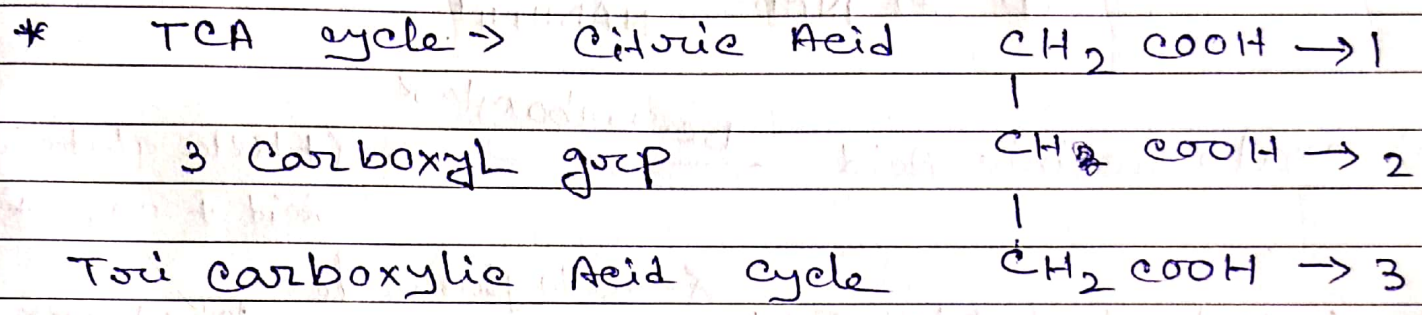 * TCA cycle → Citric Acid CH₂ COOH → 1
3 CarboxyL grp CH COOH → 2
Tri carboxylic Acid cycle CH₂ COOH → 3